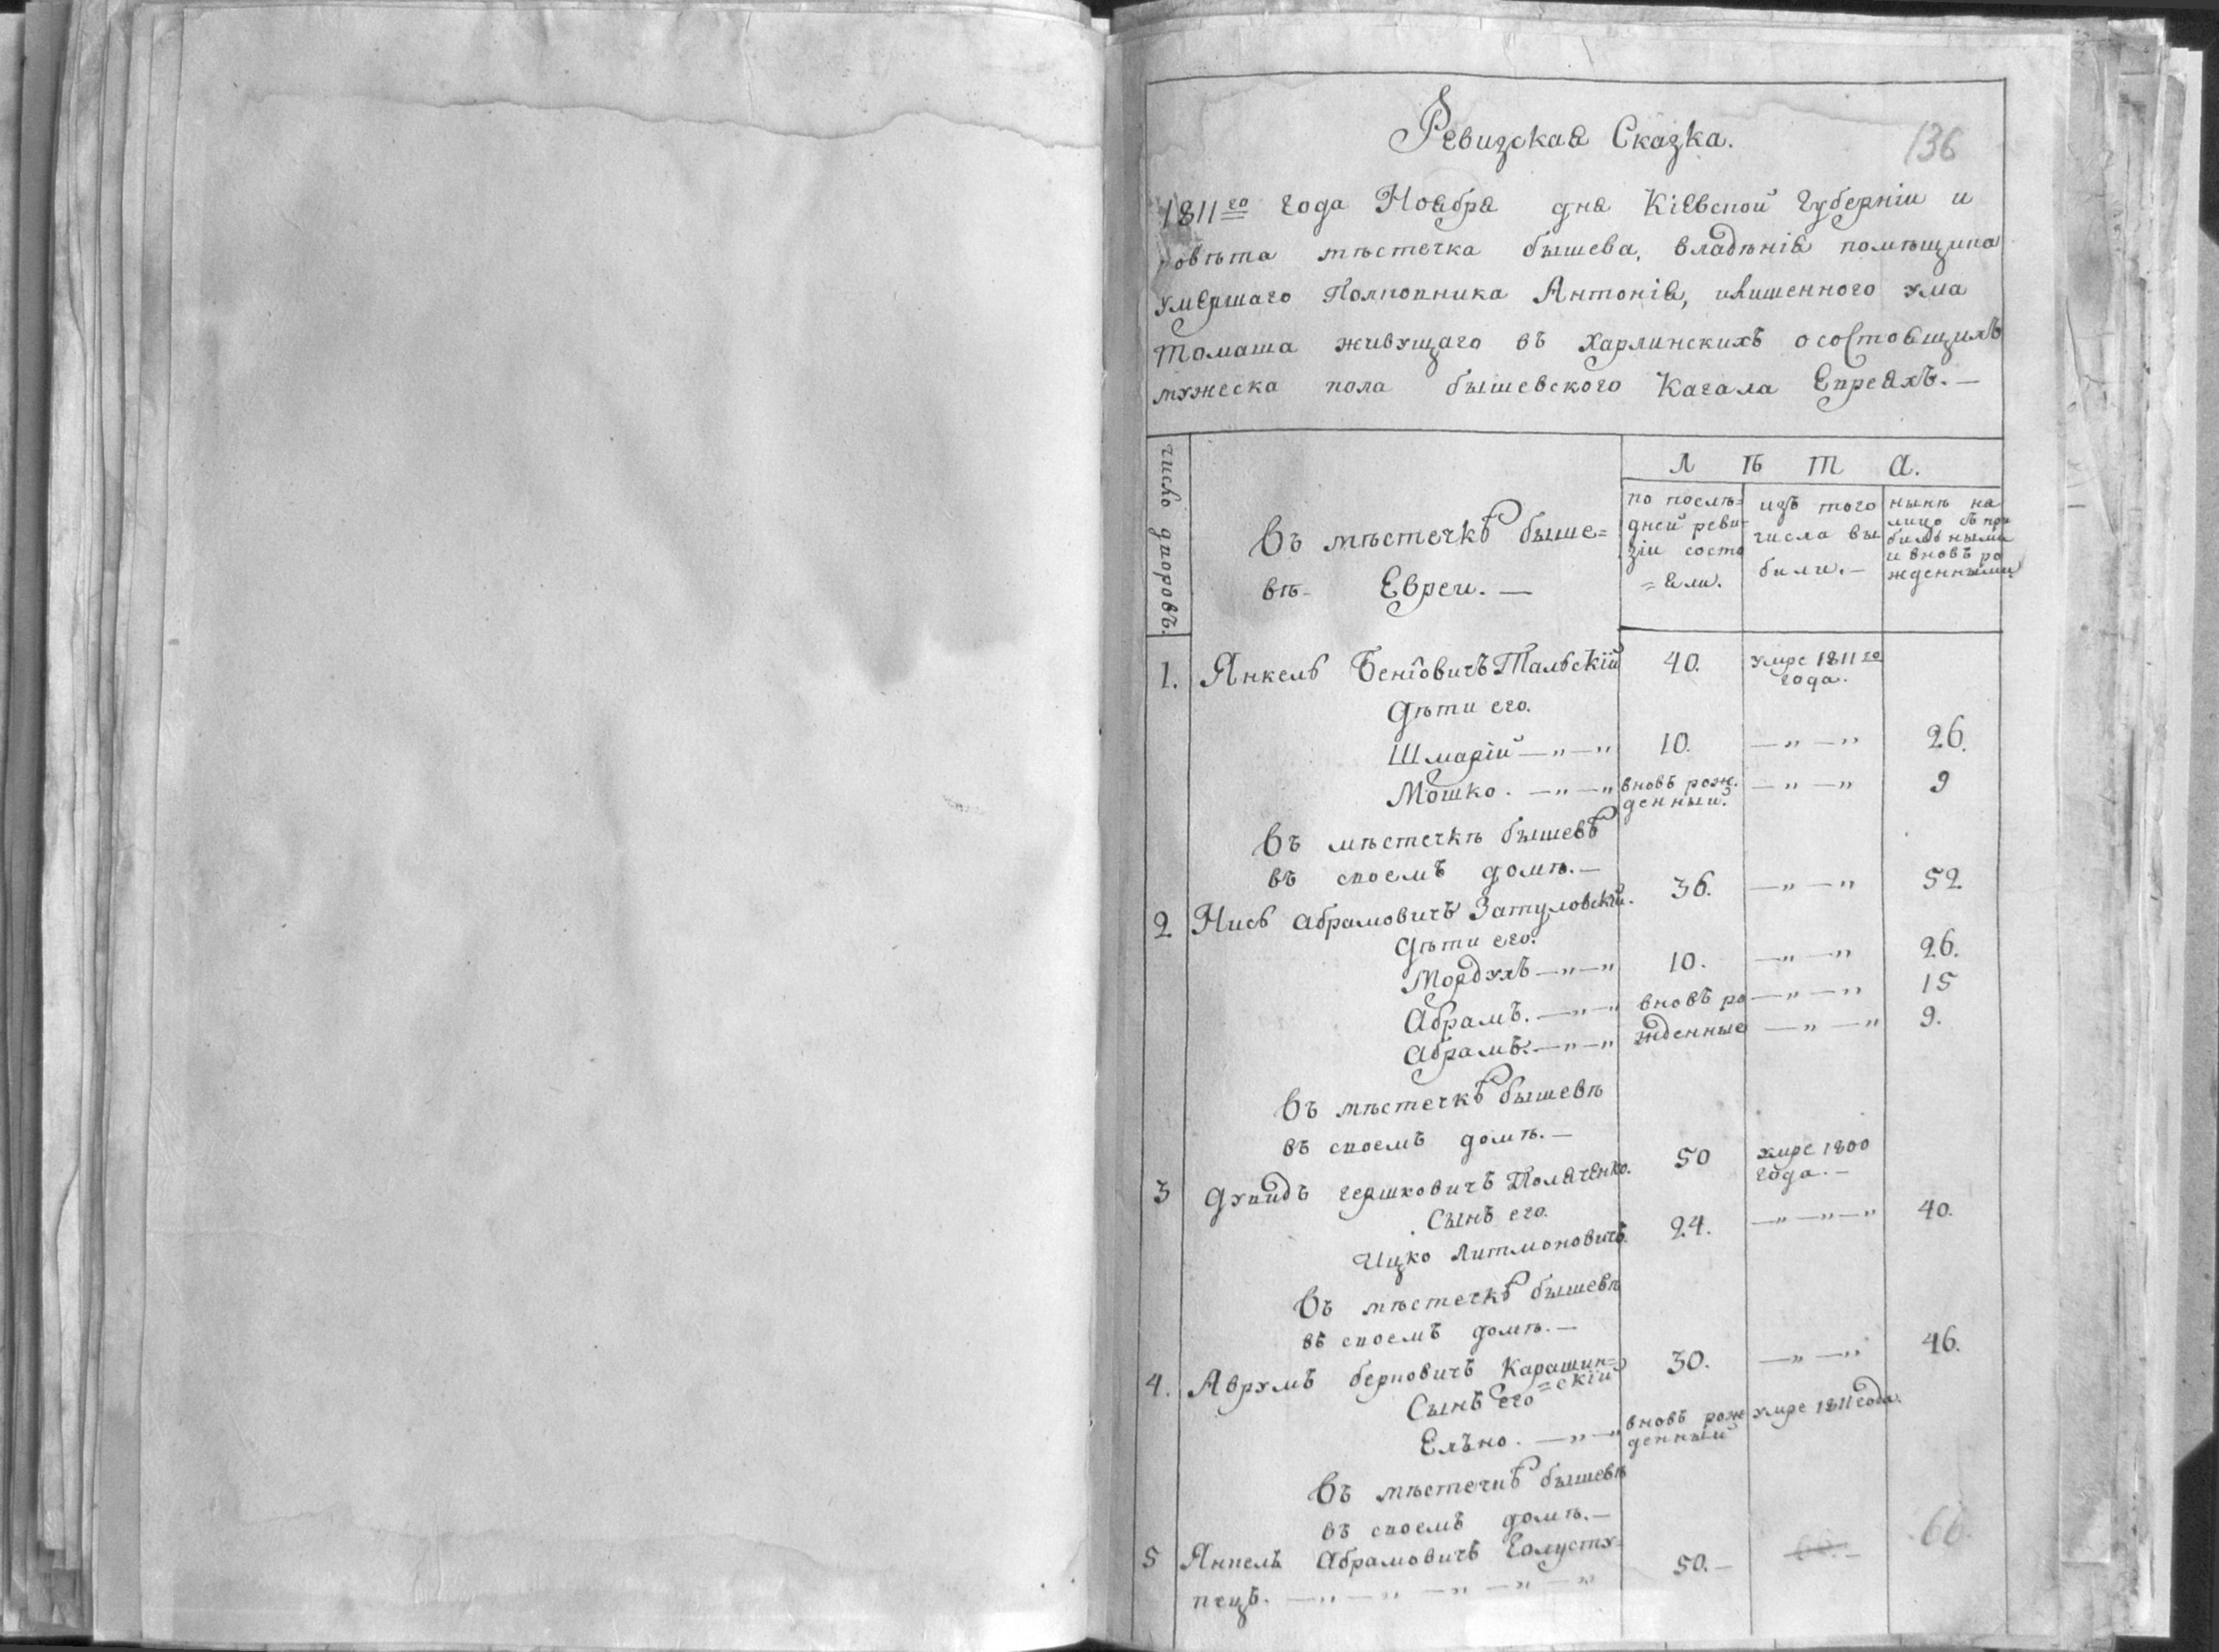 Ревизская Сказка.
136
1811го года Ноября дня Кіевской губерніи и
повѣта мѣстечка бышева, владѣнія помѣщика
умершаго Полковника Антонія, илишенного ума
Томаша живущаго въ Харлинскихъ осостоящихъ
мужеска пола бышевского Кагала Евреяхъ.—
число дворовъ.
Въ мѣстечкѣ быше=
вѣ- Евреи.—
Л ѣ т а.
по послѣ=
дней реви-
зіи состо
=яли.
изъ того
числа вы
были.—
нынѣ на
лицо съ при
былыми
и вновь ро
жденными
1. Янкель Беніовичъ Тальскій 40. умре 1811го
года.
дѣти его.
Шмарій —„—„ 10. —„—„ 26.
Мошко. —„—„ вновь рож. —„—„ 9
денный.
Въ мѣстечкѣ бышевѣ
въ своемъ домѣ.—
2 Нись Абрамовичъ Затуловскій. 36. —„—„ 52
дѣти его.
Мордухъ —„—„ 10. —„—„ 26.
Абрамъ. —„—„ вновь ро —„—„ 15
Абрамъ. —„—„ жденные —„—„ 9.
Въ мѣстечкѣ бышевѣ
въ своемъ домѣ.—
3 Дувидъ гершковичъ Поляченко. 50 умре 1800
года.—
Сынъ его.
Ицко Литмоновичъ. 24. —„—„—„ 40.
Въ мѣстечкѣ бышевѣ
въ своемъ домѣ.—
4. Аврумъ берковичъ Карашин= 30. —„—„ 46.
=скій
Сынъ его
Елько. —„—„ вновь рож умре 1811 года.
денный
Въ мѣстечкѣ бышевѣ
въ своемъ домѣ.—
5 Янкель Абрамовичъ 50.— 66.
пецъ. —„—„—„—„—„